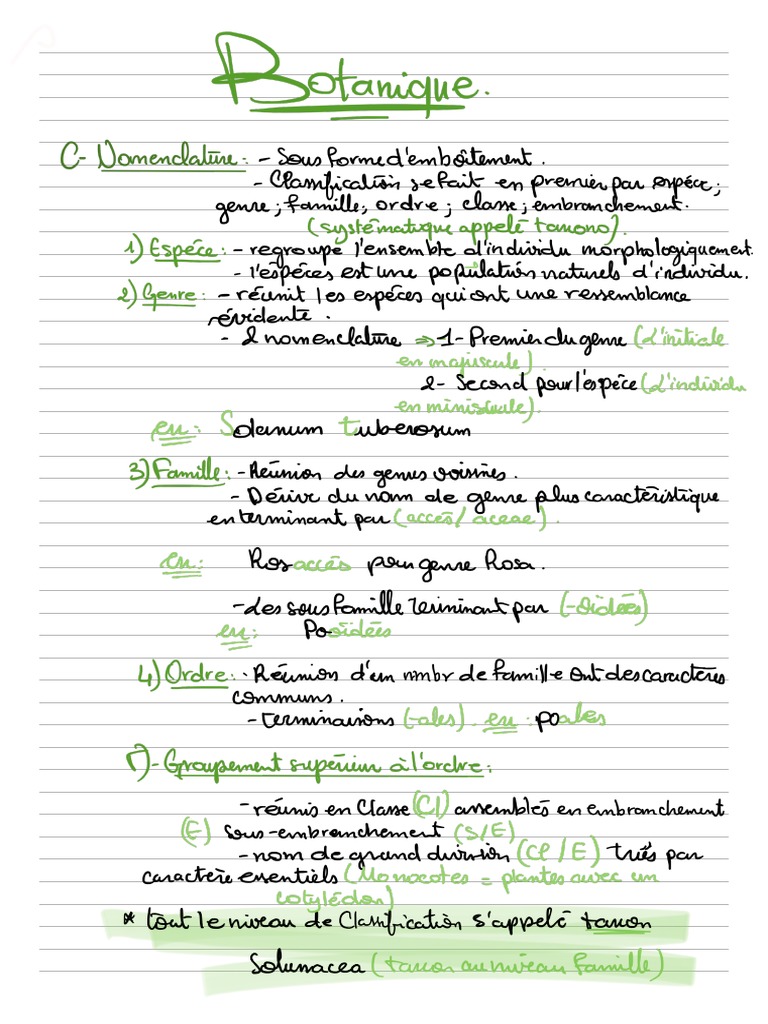 Botanique.
C- Nomenclature: - Sous forme d'emboîtement.
- Classification se fait en premier par espéce;
genre; famille, ordre; classe; embranchement.
(systématique appelé taxono).
1) Espéce: - regroupe l'ensemble d'individu morphologiquement.
- l'espéces est une population naturels d'individu.
2) Genre: - réunit les espéces qui ont une ressemblance
évidente.
- 2 nomenclature => 1- Premier du genre (L'initiale
en majuscule)
2- Second pour l'espéce (L'individu
en miniscule).
ex: Solanum tuberosum
3) Famille: - Réunion des genres voisines.
- Dérive du nom de genre plus caractéristique
en terminant par (accés/aceae).
ex: Rosaccés pour genre Rosa.
- des sous famille terminant par (-oïdées)
ex: Pooïdées
4) Ordre: - Réunion d'un nmbr de famille ont des caractères
communs.
- terminaisons (-ales). ex: poales
- Groupement supérieur à l'ordre:
- réunis en Classe (Cl) assemblés en embranchement
(E) sous-embranchement (S/E)
- nom de grand division (Cl/E) triés par
caractère essentiels (Monocotes = plantes avec un
cotylédon)
* tout le niveau de Classification s'appelé taxon
Solunacea (taxon au niveau famille)